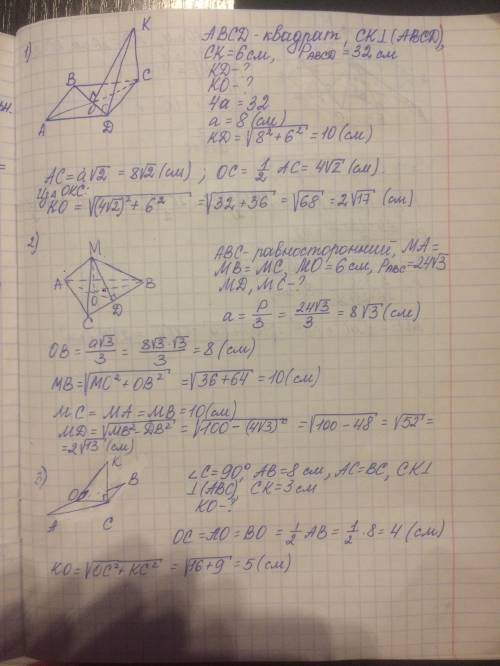 1)
K
B
C
O
A
D
ABCD - квадрат, CK⊥(ABCD),
CK=6 см, P_ABCD = 32 см
KD - ?
KO - ?
4a = 32
a = 8 (см)
KD = √(8² + 6²) = 10 (см)
AC = a√2 = 8√2 (см) ; OC = 1/2 AC = 4√2 (см).
Из △ OKC:
KO = √((4√2)² + 6²) = √(32 + 36) = √68 = 2√17 (см)
2)
M
A
B
O
D
C
ABC - равносторонний, MA =
MB = MC, MO = 6 см, P_ABC = 24√3
MD, MC - ?
a = P/3 = 24√3/3 = 8√3 (см)
OB = a√3/3 = 8√3·√3/3 = 8 (см)
MB = √(MO² + OB²) = √(36 + 64) = 10 (см)
MC = MA = MB = 10 (см)
MD = √(MB² - DB²) = √(100 - (4√3)²) = √(100 - 48) = √52 =
= 2√13 (см)
3)
K
B
O
A
C
∠C = 90°, AB = 8 см, AC = BC, CK⊥
⊥(ABC), CK = 3 см
KO - ?
OC = AO = BO = 1/2 AB = 1/2 · 8 = 4 (см)
KO = √(OC² + KC²) = √(16 + 9) = 5 (см)